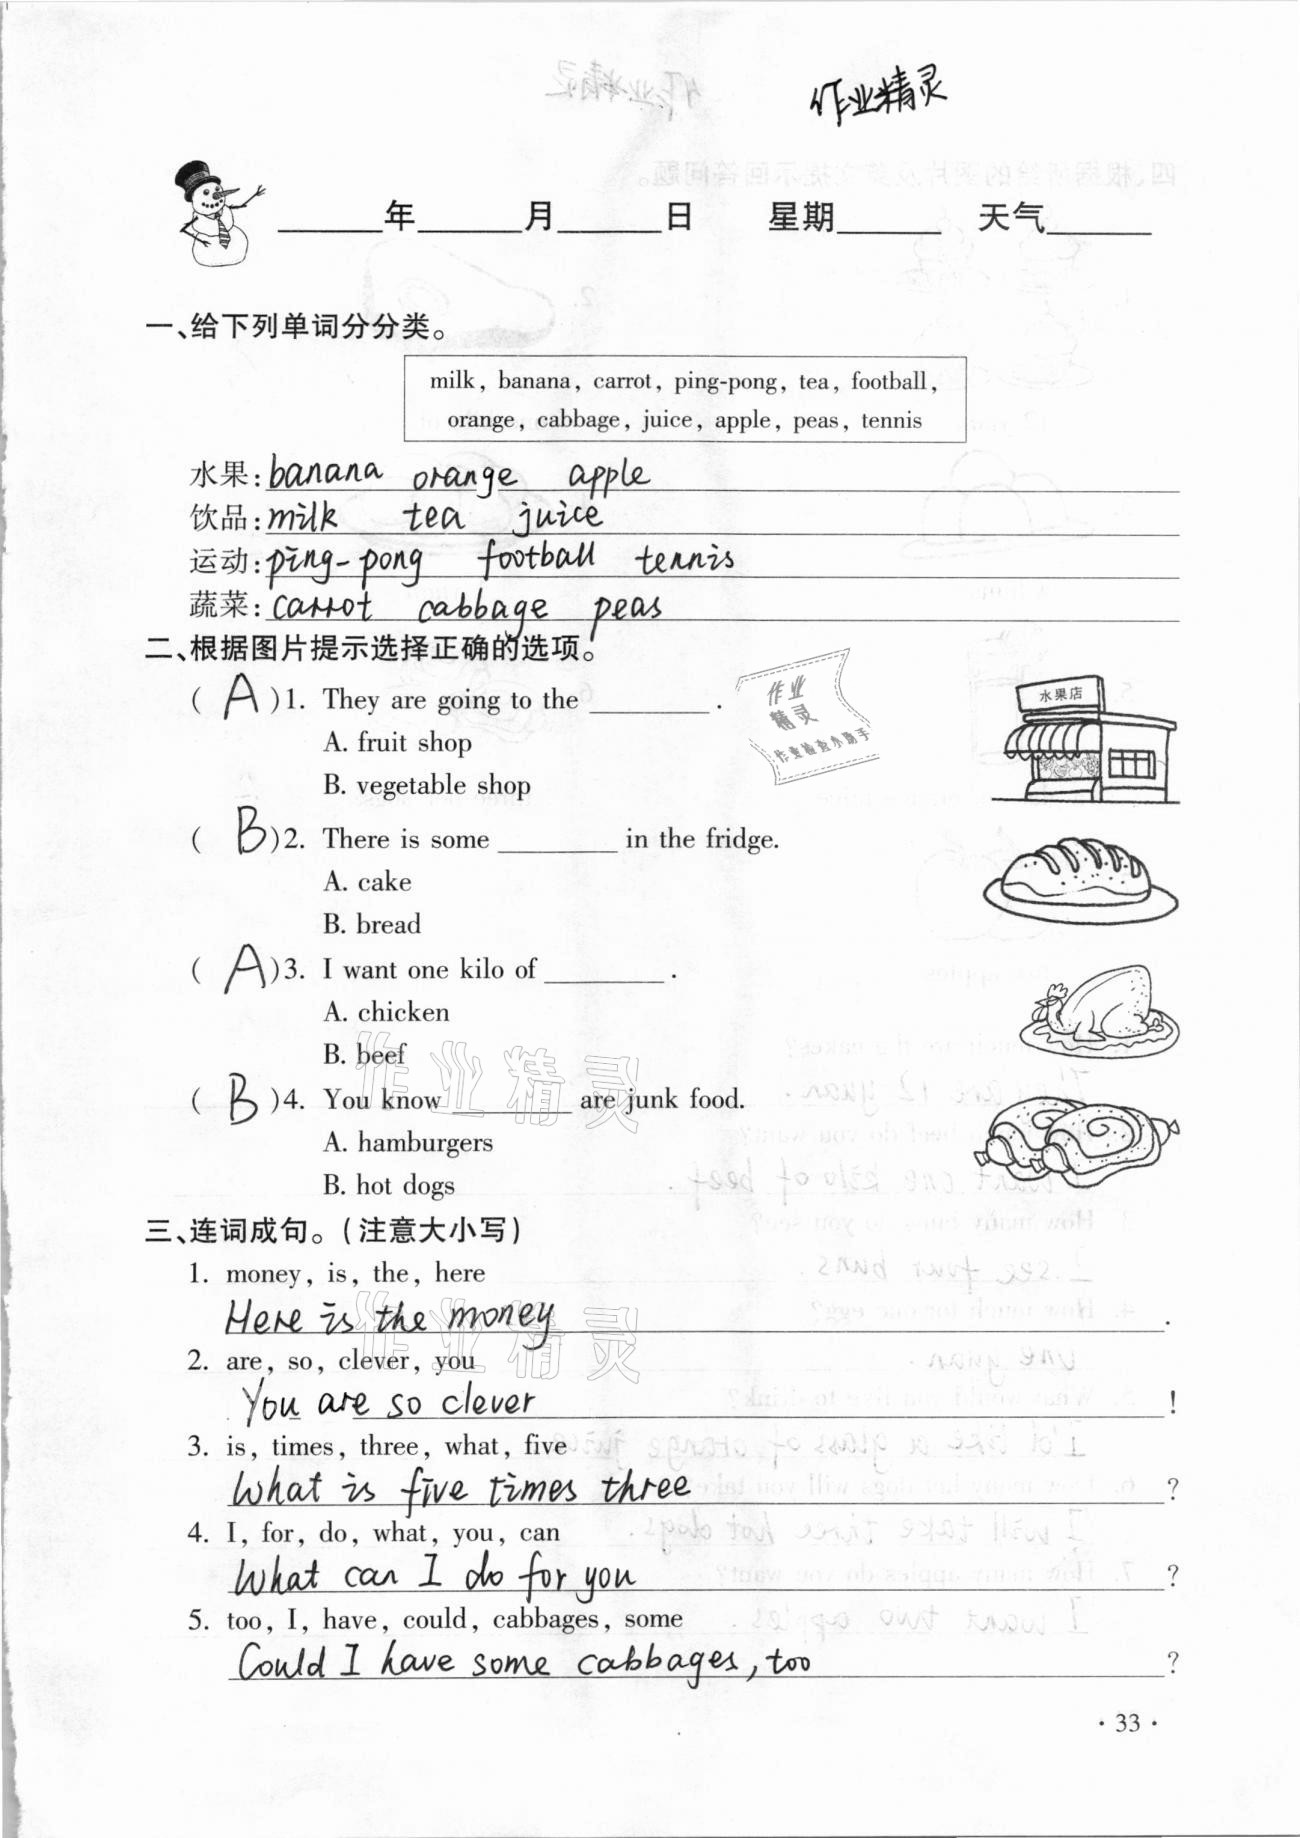 作业精灵
____年____月____日 星期____ 天气____
一、给下列单词分分类。
milk, banana, carrot, ping-pong, tea, football,
orange, cabbage, juice, apple, peas, tennis
水果: banana orange apple
饮品: milk tea juice
运动: ping-pong football tennis
蔬菜: carrot cabbage peas
二、根据图片提示选择正确的选项。
( A )1. They are going to the ________ .
A. fruit shop
B. vegetable shop
水果店
作业
精灵
作业检查小助手
( B )2. There is some ________ in the fridge.
A. cake
B. bread
( A )3. I want one kilo of ________ .
A. chicken
B. beef
作业精灵
( B )4. You know ________ are junk food.
A. hamburgers
B. hot dogs
三、连词成句。(注意大小写)
1. money, is, the, here
Here is the money .
作业精灵
2. are, so, clever, you
You are so clever !
3. is, times, three, what, five
What is five times three ?
4. I, for, do, what, you, can
What can I do for you ?
5. too, I, have, could, cabbages, some
Could I have some cabbages, too ?
· 33 ·